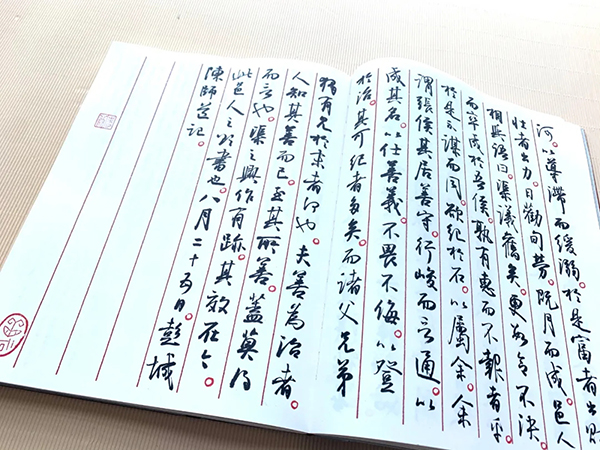 河。以導滯而緩溺。於是富者出財
壯者出力。日勸旬勞。既月而成。邑人
相與語曰。渠議舊矣。更數令不決
而卒成於吾侯。孰有惠而不報者乎
於是不謀而同。欲紀於石。以屬余。余
謂張侯其居善守。行峻而言通。以
成其名。以仕善義。不畏不侮。以登
於治。其可紀者多矣。而諸父兄弟
獨有見於末者何也。夫善為治者。
人知其善而已。至其所善。蓋莫得
而言也。渠之興作有跡。其效在今。
此邑人之所書也。八月二十五日。彭城
陳師道記。